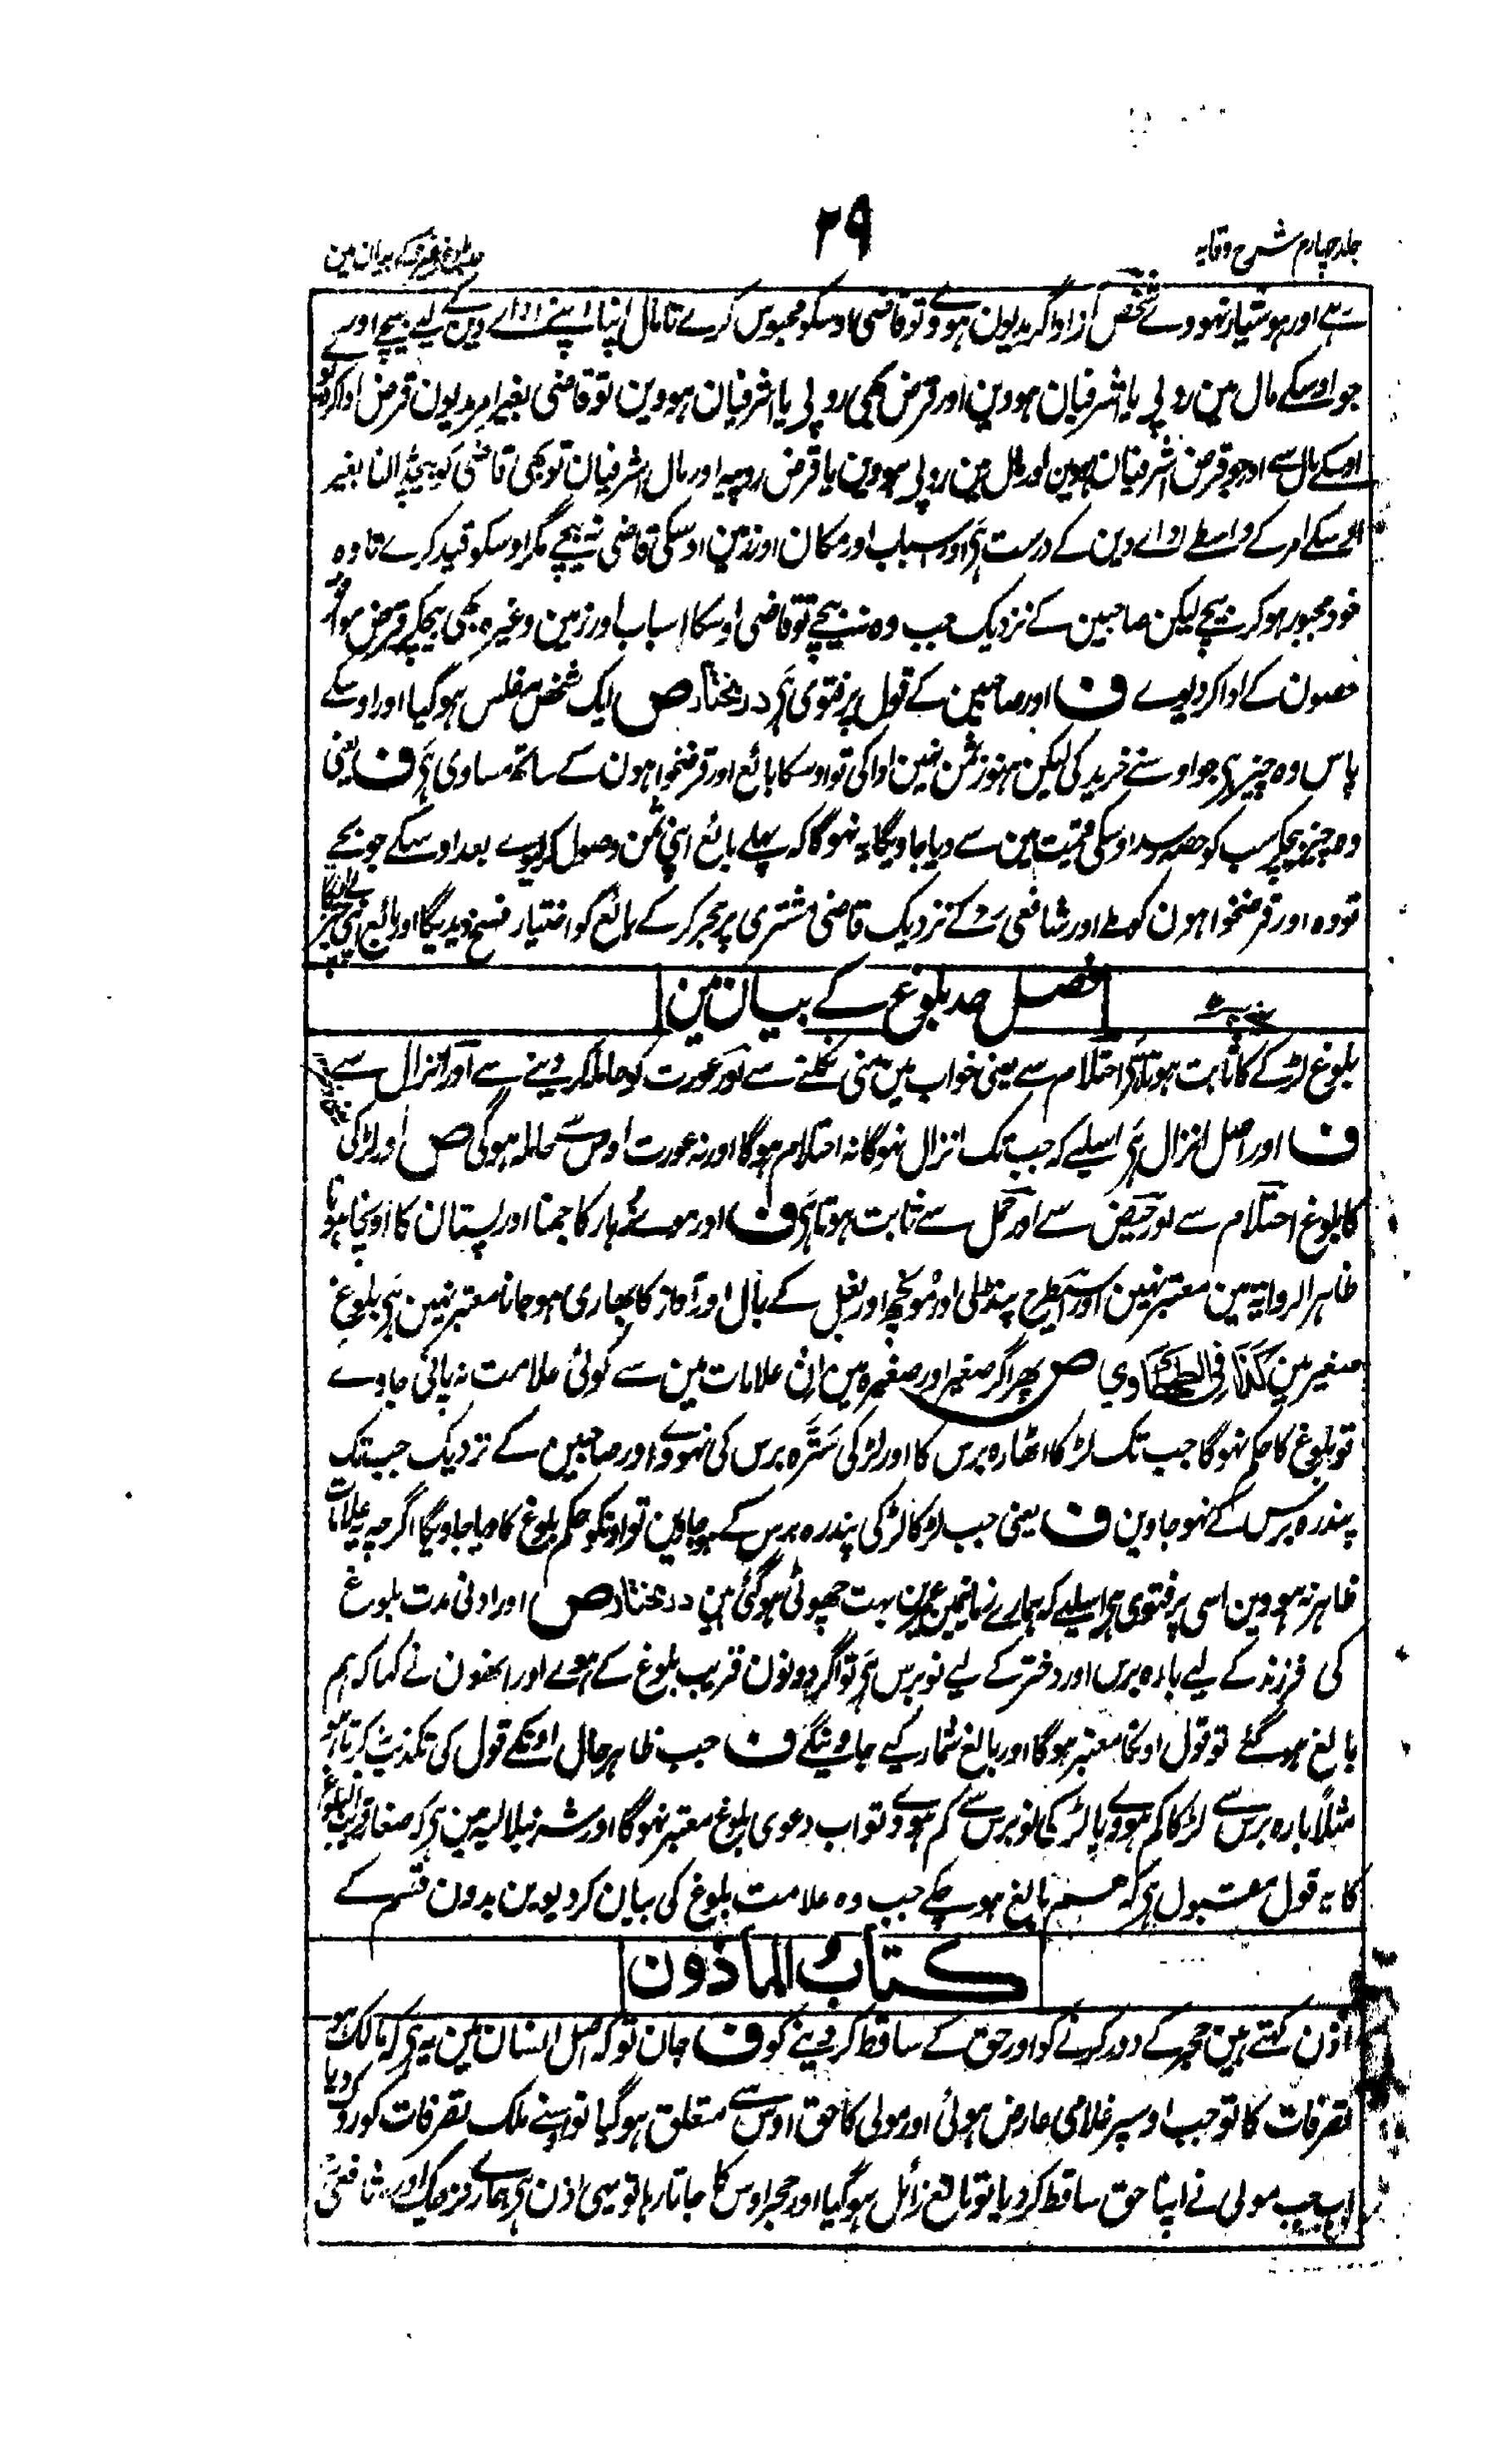 جلد چہارم شرح وقایہ
۲۹
حد بلوغ وغیرہ کے بیان مین
ہے اور ہوشیار نہووے شخص آزاد اگر مدیون ہووے تو قاضی اوسکو محبوس کرے تا مال اپنا اپنے اداے دین کے لیے بیچے اور
جو اوسکے مال مین روپی یا اشرفیان ہووین اور قرض بھی روپی یا اشرفیان ہووین تو قاضی بغیر امر مدیون قرض ادا کردے
اوسکے مال سے اور جو قرض اشرفیان ہوین اور مال مین روپی ہووین یا قرض روپیہ اور مال اشرفیان تو بھی قاضی کو بیچ ڈالنا بغیر
اوسکے امر کے واسطے اداے دین کے درست ہی اور اسباب اور مکان اور زمین اوسکی قاضی نہ بیچے مگر اوسکو قید کرے تا وہ
خود مجبور ہو کر بیچے لیکن صاحبین کے نزدیک جب وہ نہ بیچے تو قاضی اوسکا اسباب اور زمین وغیرہ بھی بیچکے قرض موافق
حصون کے ادا کر دیوے ف اور صاحبین کے قول پر فتوی ہی درمختار ص ایک شخص مفلس ہو گیا اور اوسکے
پاس وہ چیز ہی جو اوسنے خرید کی لیکن ہنوز ثمن نہین ادا کی تو اوسکا بائع اور قرضخواہون کے ساتھ مساوی ہی ف یعنی
وہ چیز بیچکر سب کو حصہ رسد اوسکی قیمت مین سے دیا جاویگا یہ نہوگا کہ پہلے بائع اپنی ثمن وصول کر لیوے بعد اوسکے جو بچے
تو وہ اور قرضخواہون کو ملے اور شافعی رح کے نزدیک قاضی مشتری پر حجر کر کے بائع کو اختیار فسخ دیدیگا اور بائع اپنی چیز
فصل حد بلوغ کے بیان مین
بلوغ لڑکے کا ثابت ہوتا ہی احتلام سے یعنی خواب مین منی نکلنے سے اور عورت کو حاملہ کر دینے سے اور انزال سے
ف اور اصل انزال ہی اسلیے کہ جب تک انزال نہوگا نہ احتلام ہوگا اور نہ عورت اوس سے حاملہ ہوگی ص اور لڑکی
کا بلوغ احتلام سے اور حیض سے اور حمل سے ثابت ہوتا ہی ف اور موے زہار کا جمنا اور پستان کا اونچا ہونا
ظاہر الروایۃ مین معتبر نہین اور اسیطرح پنڈلی اور مونچھ اور بغل کے بال اور آواز کا بھاری ہو جانا معتبر نہین ہی بلوغ
صغیر مین کذا فی الطحطاوی ص پھر اگر صغیر اور صغیرہ مین ان علامات مین سے کوئی علامت نہ پائی جاوے
تو بلوغ کا حکم نہوگا جب تک لڑکا اٹھارہ برس کا اور لڑکی سترہ برس کی نہووے اور صاحبین کے نزدیک جب تک
پندرہ برس کے نہو جاوین ف یعنی جب لڑکا لڑکی پندرہ برس کے ہو جاوین تو اونکو حکم بلوغ کا دیا جاویگا اگرچہ یہ علامات
ظاہر نہ ہووین اسی پر فتوی ہی اسلیے کہ ہمارے زمانے مین عمرین بہت چھوٹی ہو گئی ہین درمختار ص اور ادنی مدت بلوغ
کی فرزند کے لیے بارہ برس اور دختر کے لیے نو برس ہی تو اگر دونون قریب بلوغ کے ہوے اور انھون نے کہا کہ ہم
بالغ ہو گئے تو قول اونکا معتبر ہوگا اور بالغ شمار کیے جاوینگے ف جب ظاہر حال اونکے قول کی تکذیب نہ کرتا ہو
مثلاً بارہ برس سے لڑکا کم ہووے یا لڑکی نو برس سے کم ہووے تو اب دعوی بلوغ معتبر نہوگا اور شرنبلالیہ مین ہی کہ صغار قریب البلوغ
کا یہ قول مقبول ہی کہ ہم بالغ ہو چکے جب وہ علامت بلوغ کی بیان کر دیوین بدون قسم کے
کتاب الماذون
اذن کہتے ہین حجر کے دور کرنے کو اور حق کے ساقط کر دینے کو ف جان تو کہ اصل انسان مین یہ ہی کہ مالک ہو
تصرفات کا تو جب اوسپر غلامی عارض ہوئی اور مولی کا حق اوس سے متعلق ہو گیا تو اسنے ملک تصرفات کو رد کر دیا
اب جب مولی نے اپنا حق ساقط کر دیا تو مانع زائل ہو گیا اور حجر اوس کا جاتا رہا تو یہی اذن ہی ہمارے نزدیک اور شافعی